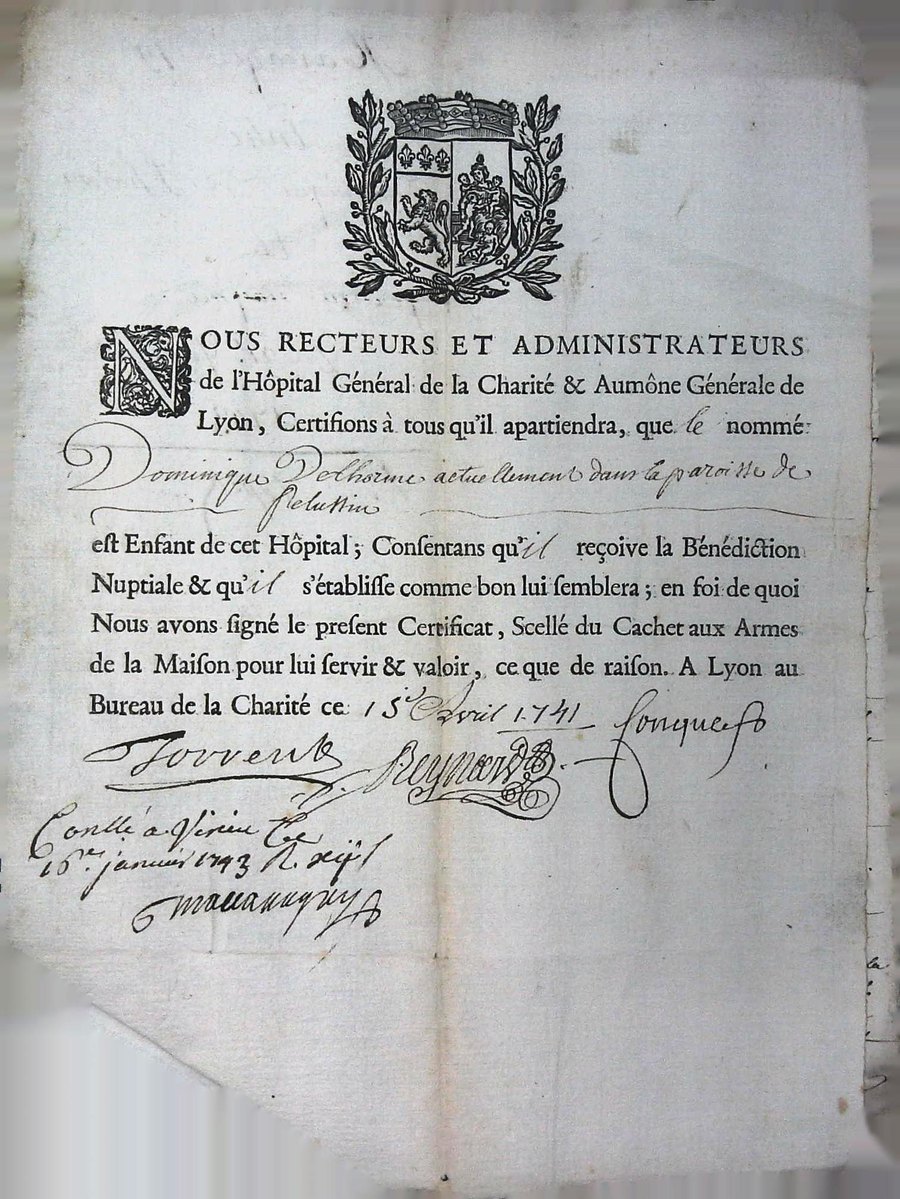 NOUS RECTEURS ET ADMINISTRATEURS
de l'Hôpital Général de la Charité & Aumône Générale de
Lyon, Certifions à tous qu'il apartiendra, que le nommé
Dominique Delhorme actuellement dans la paroisse de
Pelussin
est Enfant de cet Hôpital; Consentans qu'il reçoive la Bénédiction
Nuptiale & qu'il s'établisse comme bon lui semblera; en foi de quoi
Nous avons signé le present Certificat, Scellé du Cachet aux Armes
de la Maison pour lui servir & valoir, ce que de raison. A Lyon au
Bureau de la Charité ce 15e Avril 1741
Torrent Reynard
Conllé a Virieu Le
16me janvier 1743 R.